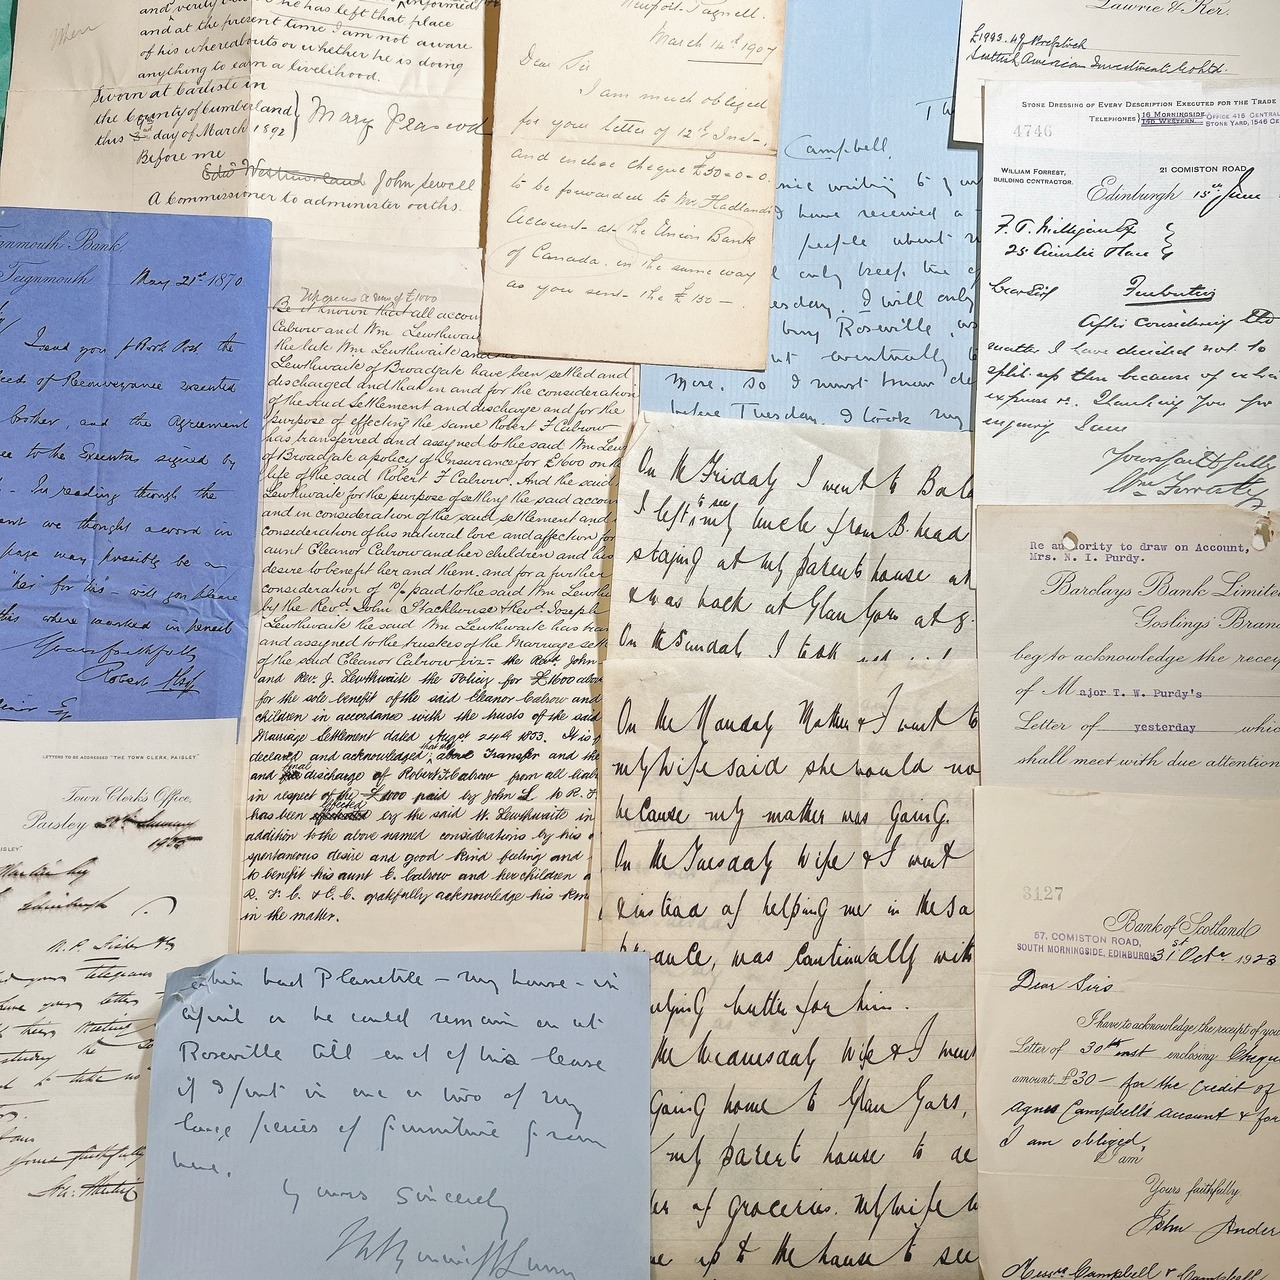 and verily
he has left that place
and at the present time I am not aware
of his whereabouts or whether he is doing
anything to earn a livelihood.
Sworn at Carlisle in
the County of Cumberland
this 3rd day of March 1892
Mary Peascod
Before me
John Sewell
A Commissioner to administer oaths.
Newport Pagnell.
March 14th 1907
Dear Sir
I am much obliged
for your letter of 12th Inst.
and enclose cheque £50=0=0.
to be forwarded to Mr. Hadland's
Account at the Union Bank
of Canada. in the same way
as you sent the £150 —
Campbell,
writing to
I have received a
people about
only keep the
I will only
buy Roseville,
eventually
more. so I must know
before Tuesday. I took my
Lawrie & Ker.
Scottish American Investment Co Ltd.
STONE DRESSING OF EVERY DESCRIPTION EXECUTED FOR THE TRADE
TELEPHONES
16 MORNINGSIDE
OFFICE 416 CENTRAL
STONE YARD, 1546 CE
4746
WILLIAM FORREST,
BUILDING CONTRACTOR.
21 COMISTON ROAD
Edinburgh 15th June
25 Ainslie Place
Dear Sir
After considering the
matter I have decided not to
split up this because of extra
expense &c. Thanking you for
enquiry I am
Yours faithfully
Wm Forrest
nmouth Bank
Teignmouth
May 21st 1870
I send you p Book Post the
eed of Reconveyance executed
brother, and the Agreement
to the Executors signed by
In reading through the
we thought a word in
page may possibly be a
"her" for "his" – will you please
this where marked in pencil
Yours faithfully
Robert
Whereas a sum of £1000
Be it known that all accou
Calrow and Wm Lewthwai
the late Wm Lewthwaite and
Lewthwaite of Broadgate have been settled and
discharged and that in and for the consideration
of the said Settlement and discharge and for the
purpose of effecting the same Robert F Calrow
has transferred and assigned to the said Wm Lew
of Broadgate a policy of Insurance for £1600 on the
life of the said Robert F Calrow. And the said
Lewthwaite for the purpose of settling the said accou
and in consideration of the said settlement and
consideration of his natural love and affection for
aunt Eleanor Calrow and her children and his
desire to benefit her and them. and for a further
consideration of 10/- paid to the said Wm Lewth
by the Revd. John Stackhouse & Revd. Joseph
Lewthwaite he said Wm Lewthwaite has tran
and assigned to the trustees of the Marriage sett
of the said Eleanor Calrow viz – the Rev. John
and Rev. J. Lewthwaite the Policy for £1600 abov
for the sole benefit of the said Eleanor Calrow and
children in accordance with the trusts of the said
Marriage Settlement dated August 24th 1853. It is
declared and acknowledged that the above Transfer and the
and final discharge of Robert F Calrow from all liab
in respect of the £1000 paid by John L to R. F.
has been effected by the said W. Lewthwaite in
addition to the above named considerations by his
spontaneous desire and good kind feeling and
to benefit his aunt E. Calrow and her children
R. F. C & E. C. gratefully acknowledge his kin
in the matter.
On the Friday I went to
I left to see my uncle from B. head
staying at my parents house at
& was back at Glan Gors at 8.
On the Sunday I took
On the Monday Mother & I went to
my wife said she would no
because my mother was going.
On the Tuesday Wife & I went
& instead of helping me in the
ance, was continually with
elping butter for him.
the Wednesday Wife & I went
Going home to Glan Gors,
my parents house to
of groceries. My wife
up to the house to see
Re authority to draw on Account,
Mrs. N. I. Purdy.
Barclays Bank Limite
Goslings' Bran
beg to acknowledge the recei
of Major T. W. Purdy's
Letter of yesterday whic
shall meet with due attention
LETTERS TO BE ADDRESSED "THE TOWN CLERK, PAISLEY."
Town Clerk's Office,
Paisley
Edinburgh
Telegram
your letter
Yours faithfully
had Planetile – my house – in
April or he could remain on at
Roseville till end of his lease
if I put in one or two of my
large pieces of furniture from
here.
Yours sincerely
3127
Bank of Scotland
57, COMISTON ROAD,
SOUTH MORNINGSIDE, EDINBURGH
31st Octr. 1923
Dear Sirs
I have to acknowledge the receipt of your
Letter of 30th inst enclosing Cheque
amount £30 – for the credit of
Agnes Campbell's account & for
I am obliged.
I am
Yours faithfully
John Ander
Messrs Campbell &